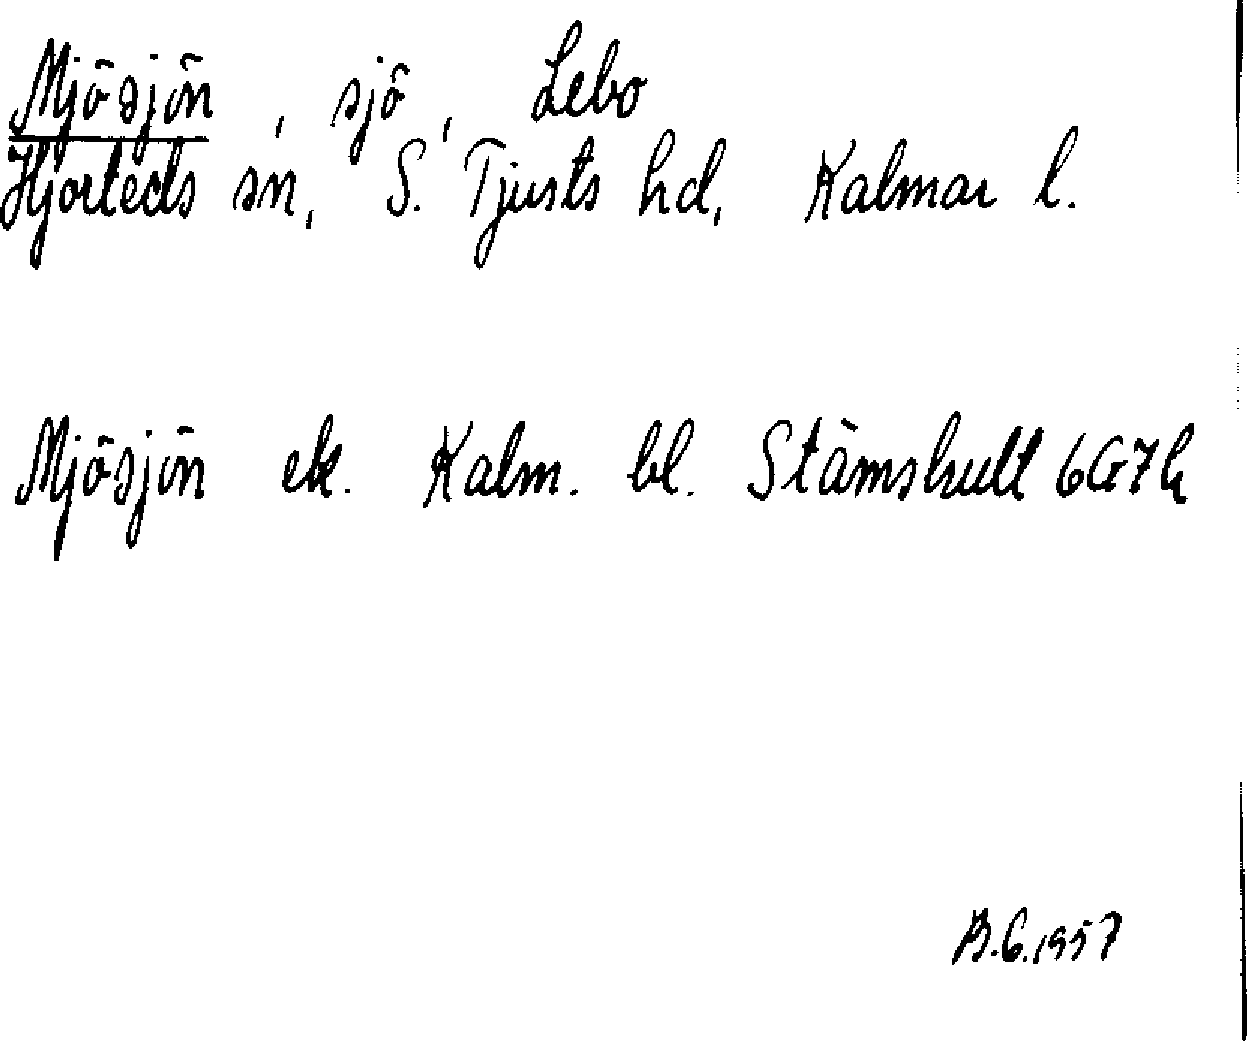 Mjösjön, sjö, Lebo
Hjorteds sn, S. Tjusts hd, Kalmar l.
Mjösjön ek. Kalm. bl. Stämshult 6G7h
B.G.1957